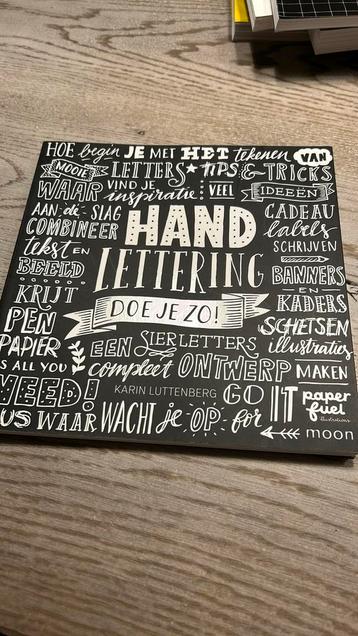 HOE begin JE MET HET tekenen VAN
MOOIE LETTERS ★ TIPS & TRICKS
WAAR VIND JE inspiratie: VEEL IDEEËN
AAN de SLAG
COMBINEER
tekst EN
BEELD
KRIJT
PEN
PAPIER
HAND
LETTERING
DOE JE ZO!
CADEAU
labels
SCHRIJVEN
BANNERS
EN
KADERS
SCHETSEN
illustraties
EEN SIERLETTERS
S ALL YOU compleet ONTWERP MAKEN
EED! KARIN LUTTENBERG GO IT paper
fuel
US WAAR WACHT je OP for
moon